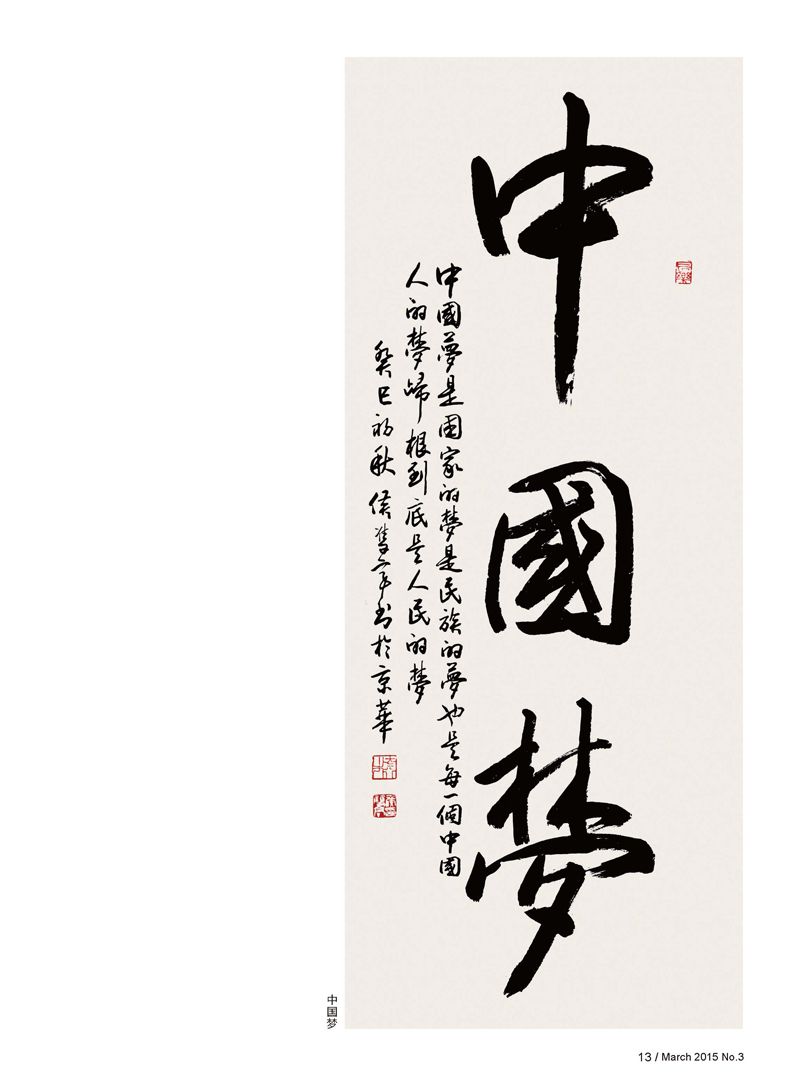 中國夢
中國夢是國家的夢是民族的夢也是每一個中國
人的夢歸根到底是人民的夢
癸巳初秋侯雙平書於京華
中国梦
13 / March 2015 No.3